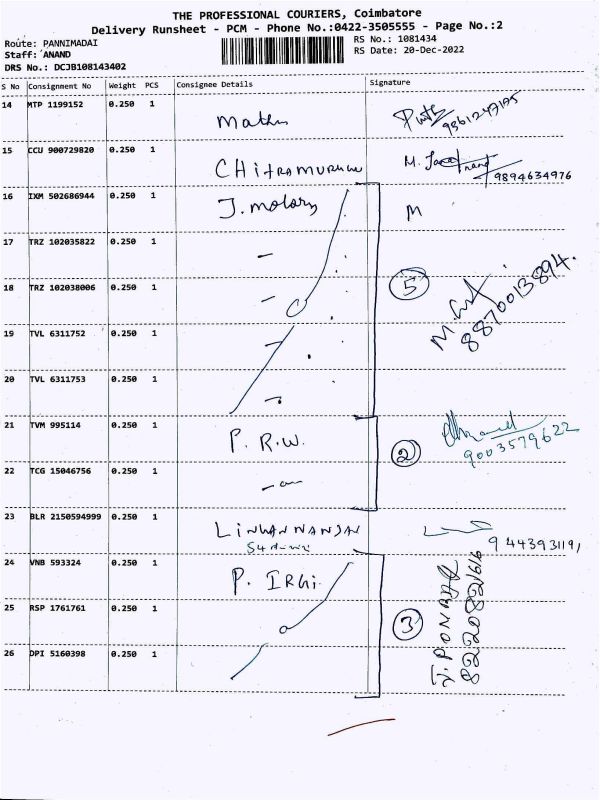 THE PROFESSIONAL COURIERS, Coimbatore
Delivery Runsheet - PCM - Phone No.:0422-3505555 - Page No.:2
Route: PANNIMADAI
RS No.: 1081434
Staff: ANAND
RS Date: 20-Dec-2022
DRS No.: DCJB108143402
S No Consignment No Weight PCS Consignee Details Signature
14 MTP 1199152 0.250 1
15 CCU 900729820 0.250 1 CHITRAMURUGAN M. 9894634976
16 IXM 502686944 0.250 1 M
17 TRZ 102035822 0.250 1 -
18 TRZ 102038006 0.250 1 - 5 8870013894.
19 TVL 6311752 0.250 1
20 TVL 6311753 0.250 1
21 TVM 995114 0.250 1 P. R.W. 9003579622
22 TCG 15046756 0.250 1 2
23 BLR 2150594999 0.250 1
24 VNB 593324 0.250 1 P.
25 RSP 1761761 0.250 1 3 822082166
26 DPI 5160398 0.250 1